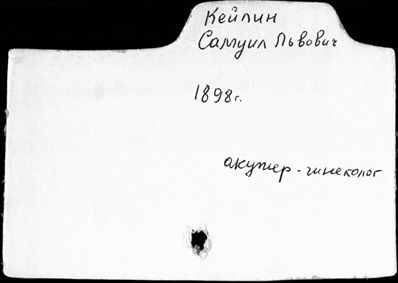 Кейлин
Самуил Львович
1898г.
акушер-гинеколог